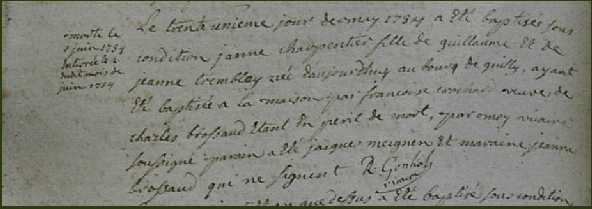 morte le
1 juin 1754
enterrée le 2
dudit mois de
juin 1754
Le trente unieme jour de may 1754 a été baptisée sous
condition janne charpentier fille de guillaume et de
jeanne trembley née daujourdhuy au bourg de quilly, ayant
été baptisée a la maison par francoise veuve de
charles brossaud etant en peril de mort, par moy vicaire
soussigné parain a été jacque meignen et maraine jeanne
brossaud qui ne signent R
vicaire
que dessus a été baptisé sous condition